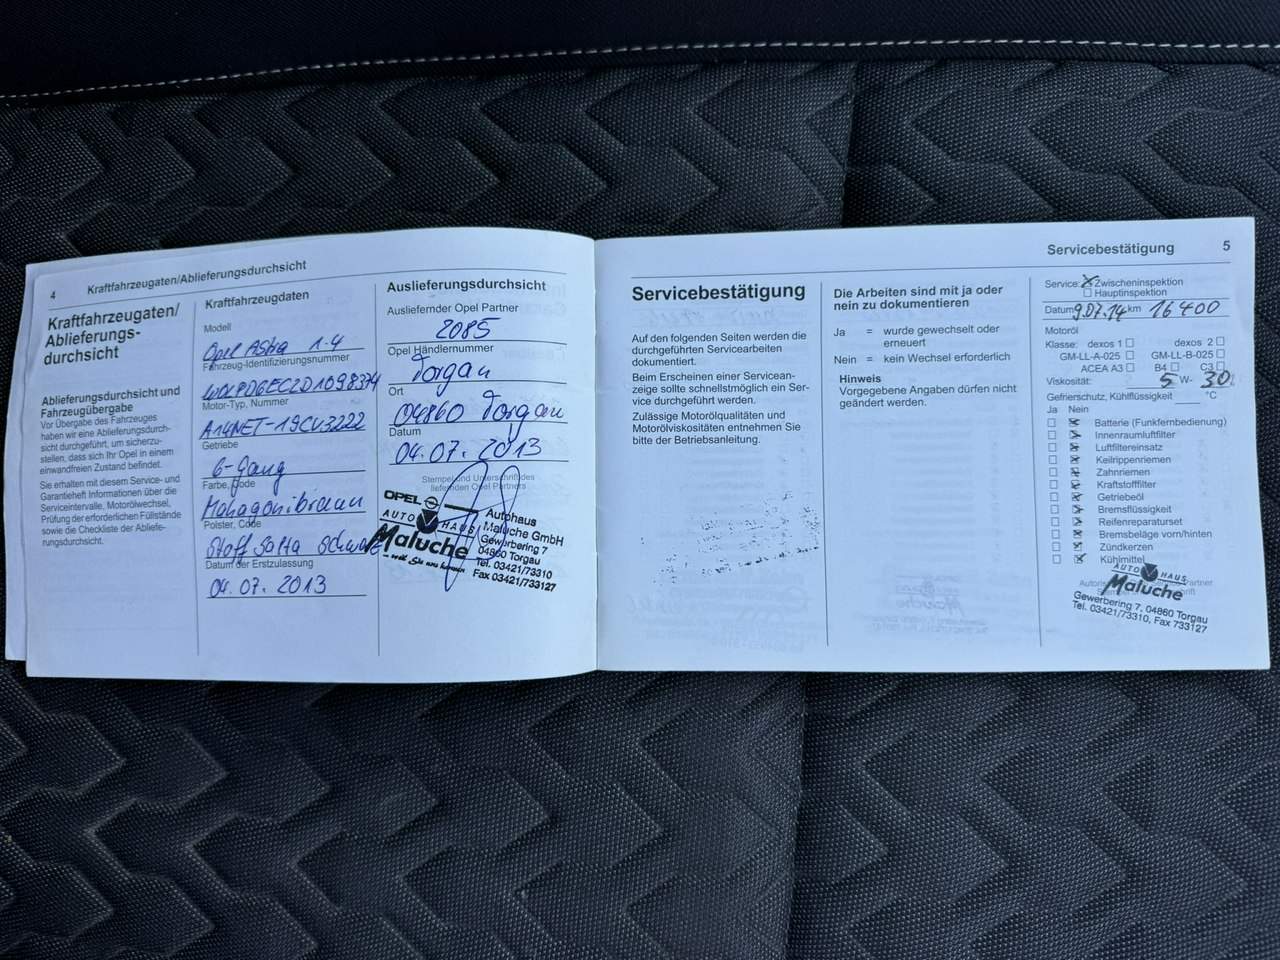 4 Kraftfahrzeugaten/Ablieferungsdurchsicht
Kraftfahrzeugaten/
Ablieferungs-
durchsicht
Ablieferungsdurchsicht und
Fahrzeugübergabe
Vor Übergabe des Fahrzeuges
haben wir eine Ablieferungsdurch-
sicht durchgeführt, um sicherzu-
stellen, dass sich Ihr Opel in einem
einwandfreien Zustand befindet.
Sie erhalten mit diesem Service- und
Garantieheft Informationen über die
Serviceintervalle, Motorölwechsel,
Prüfung der erforderlichen Füllstände
sowie die Checkliste der Abliefe-
rungsdurchsicht.
Kraftfahrzeugdaten
Modell
Opel Astra 1.4
Fahrzeug-Identifizierungsnummer
W0LPD6EC2D1098374
Motor-Typ, Nummer
A14NET-19CV3222
Getriebe
6-Gang
Farbe, Code
Mahagonibraun
Polster, Code
Stoff Salta Schwarz
Datum der Erstzulassung
04.07.2013
Auslieferungsdurchsicht
Ausliefernder Opel Partner
2085
Opel Händlernummer
Torgau
Ort
04860 Torgau
Datum
04.07.2013
Stempel und Unterschrift des
liefernden Opel Partners
OPEL
AUTO HAUS
Maluche
Autohaus
Maluche GmbH
Gewerbering 7
04860 Torgau
Tel. 03421/73310
Fax 03421/733127
Servicebestätigung 5
Servicebestätigung
Auf den folgenden Seiten werden die
durchgeführten Servicearbeiten
dokumentiert.
Beim Erscheinen einer Servicean-
zeige sollte schnellstmöglich ein Ser-
vice durchgeführt werden.
Zulässige Motorölqualitäten und
Motorölviskositäten entnehmen Sie
bitte der Betriebsanleitung.
Die Arbeiten sind mit ja oder
nein zu dokumentieren
Ja = wurde gewechselt oder
erneuert
Nein = kein Wechsel erforderlich
Hinweis
Vorgegebene Angaben dürfen nicht
geändert werden.
Service: X Zwischeninspektion
☐ Hauptinspektion
Datum 9.07.14 km 16400
Motoröl
Klasse: dexos 1 ☐ dexos 2 ☐
GM-LL-A-025 ☐ GM-LL-B-025 ☐
ACEA A3 ☐ B4 ☐ C3 ☐
Viskosität: 5 W- 30
Gefrierschutz, Kühlflüssigkeit ____ °C
Ja Nein
☐ ☒ Batterie (Funkfernbedienung)
☐ ☒ Innenraumluftfilter
☐ ☒ Luftfiltereinsatz
☐ ☒ Keilrippenriemen
☐ ☒ Zahnriemen
☐ ☒ Kraftstofffilter
☐ ☒ Getriebeöl
☐ ☒ Bremsflüssigkeit
☐ ☒ Reifenreparaturset
☐ ☒ Bremsbeläge vorn/hinten
☐ ☒ Zündkerzen
☐ ☒ Kühlmittel
AUTO HAUS
Maluche
Gewerbering 7, 04860 Torgau
Tel. 03421/73310, Fax 733127